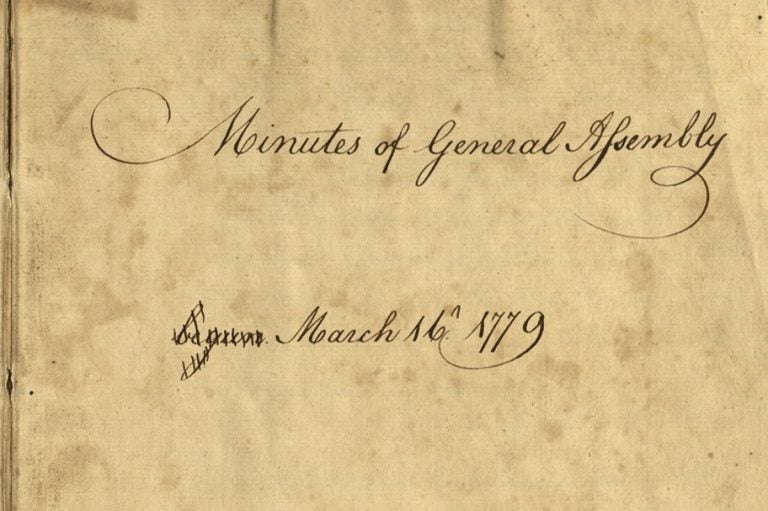 Minutes of General Aſsembly
March 16ʰ 1779